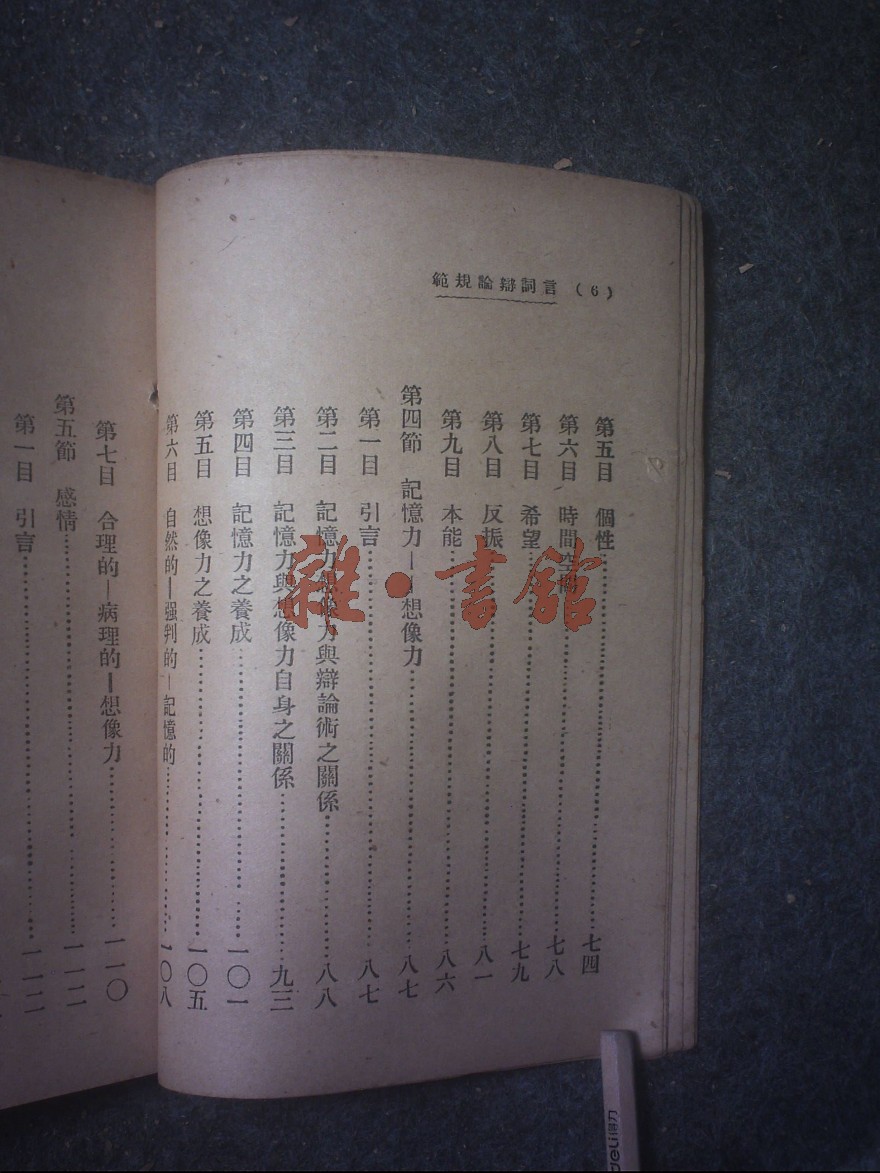 言詞辯論規範 (6)
第五目 個性……七四
第六目 時間空間……七八
第七目 希望……七九
第八目 反振……八一
第九目 本能……八六
第四節 記憶力——想像力……八七
第一目 引言……八七
第二目 記憶力想像力與辯論術之關係……八八
第三目 記憶力與想像力自身之關係……九三
第四目 記憶力之養成……一〇一
第五目 想像力之養成……一〇五
第六目 自然的—强判的—記憶的……一〇八
第七目 合理的—病理的—想像力……一一〇
第五節 感情……一一二
第一目 引言……一一二
雜·書館
deli得力